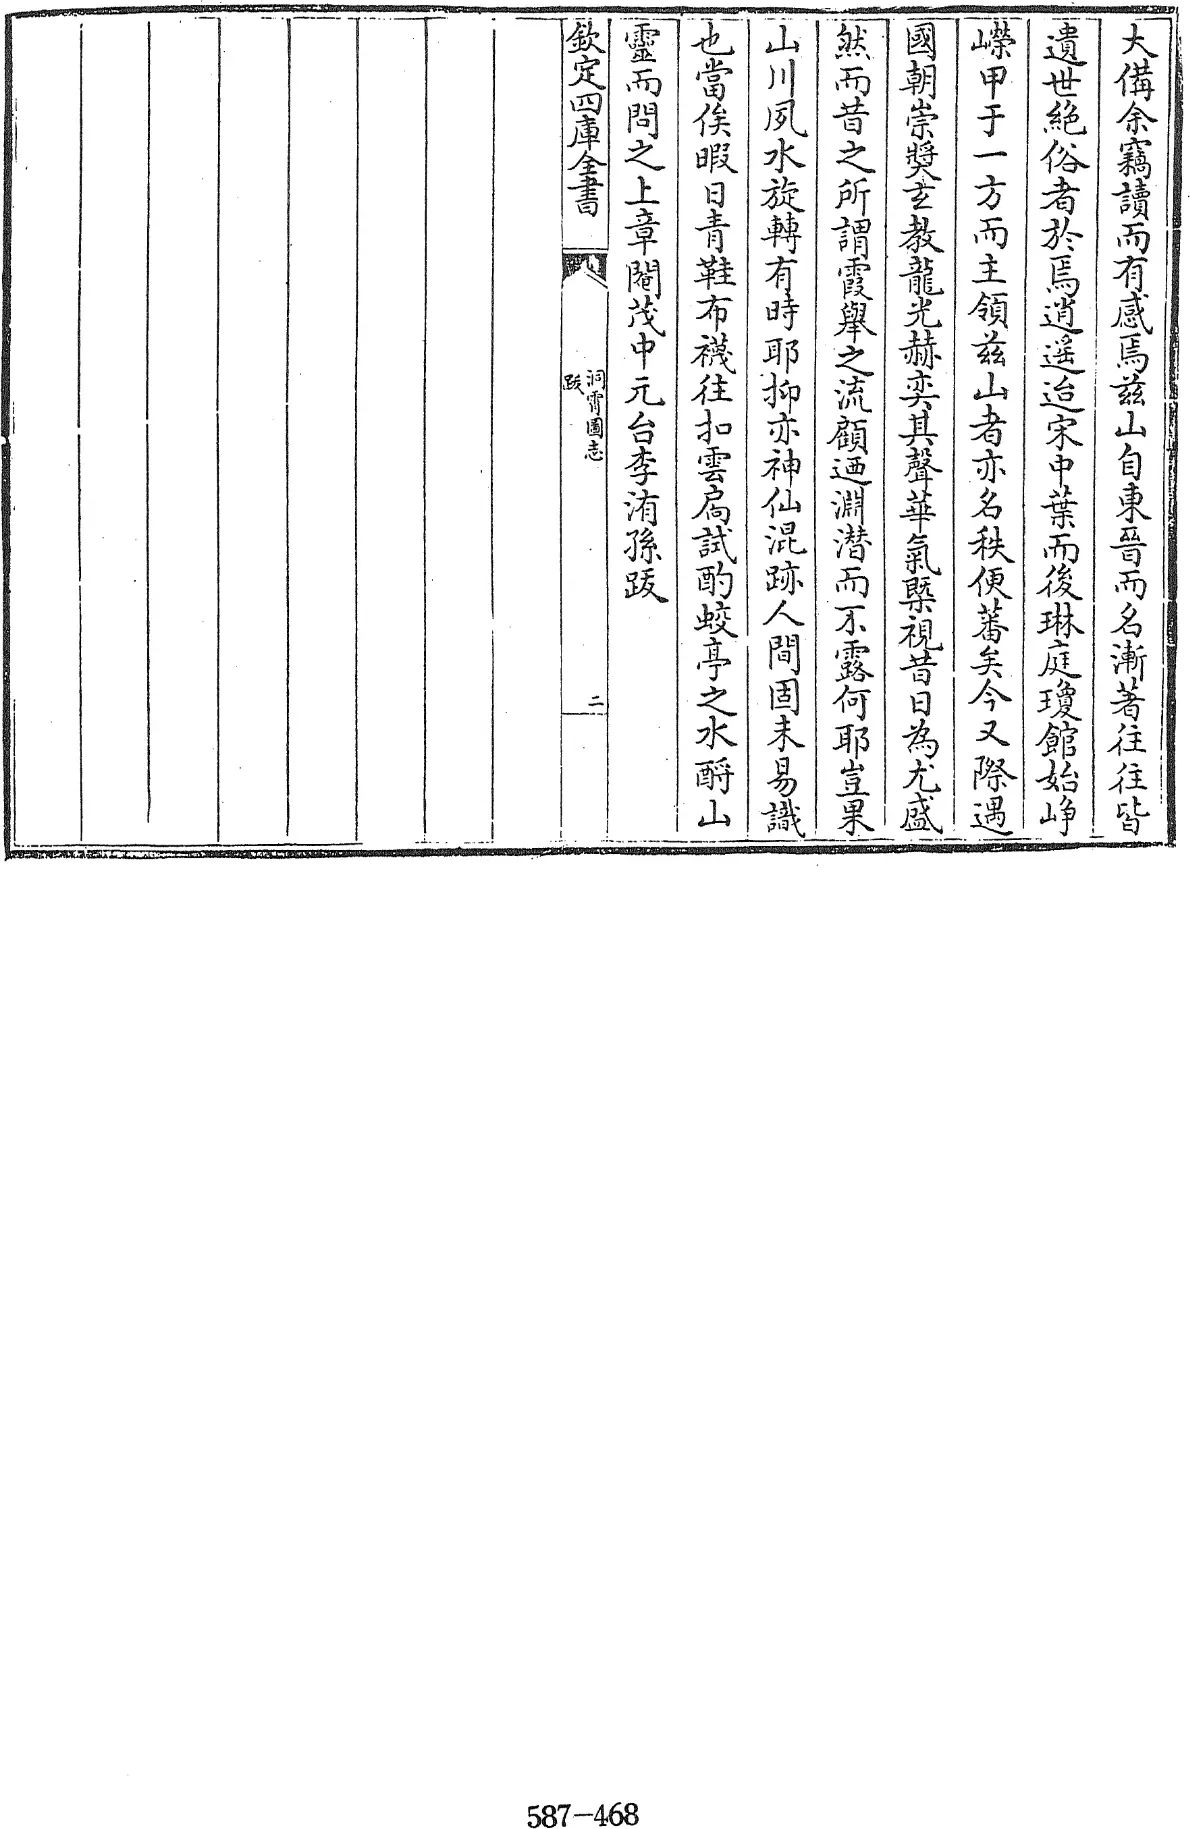 大備余竊讀而有感焉兹山自東晉而名漸著往往皆
遺世絶俗者於焉逍遥迨宋中葉而後琳庭瓊館始峥
嶸甲于一方而主領兹山者亦名秩便蕃矣今又際遇
國朝崇奬玄教龍光赫奕其聲華氣槩視昔日為尤盛
然而昔之所謂霞舉之流顧廼淵潜而不露何耶豈果
山川夙水旋轉有時耶抑亦神仙混跡人間固未易識
也當俟暇日青鞋布襪往扣雲扄試酌蛟亭之水酹山
靈而問之上章閹茂中元台李洧孫跋
欽定四庫全書
洞霄圖志
跋
二
587-468